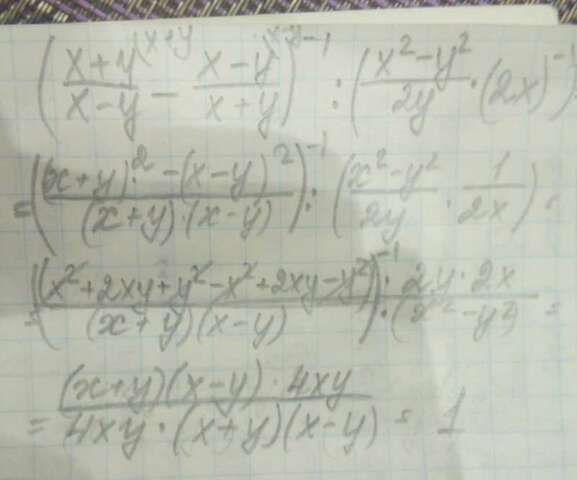 ( (x+y)/(x-y) ^(x+y) - (x-y)/(x+y) ^(x-y) )^-1 : ( (x²-y²)/2y · (2x)^-1
= ( ((x+y)² - (x-y)²)/((x+y)·(x-y)) )^-1 : ( (x²-y²)/2y · 1/2x ) =
= ( (x²+2xy+y²-x²+2xy-y²)/((x+y)(x-y)) )^-1 · (2y·2x)/(x²-y²) =
= ((x+y)(x-y)·4xy)/(4xy·(x+y)(x-y)) = 1